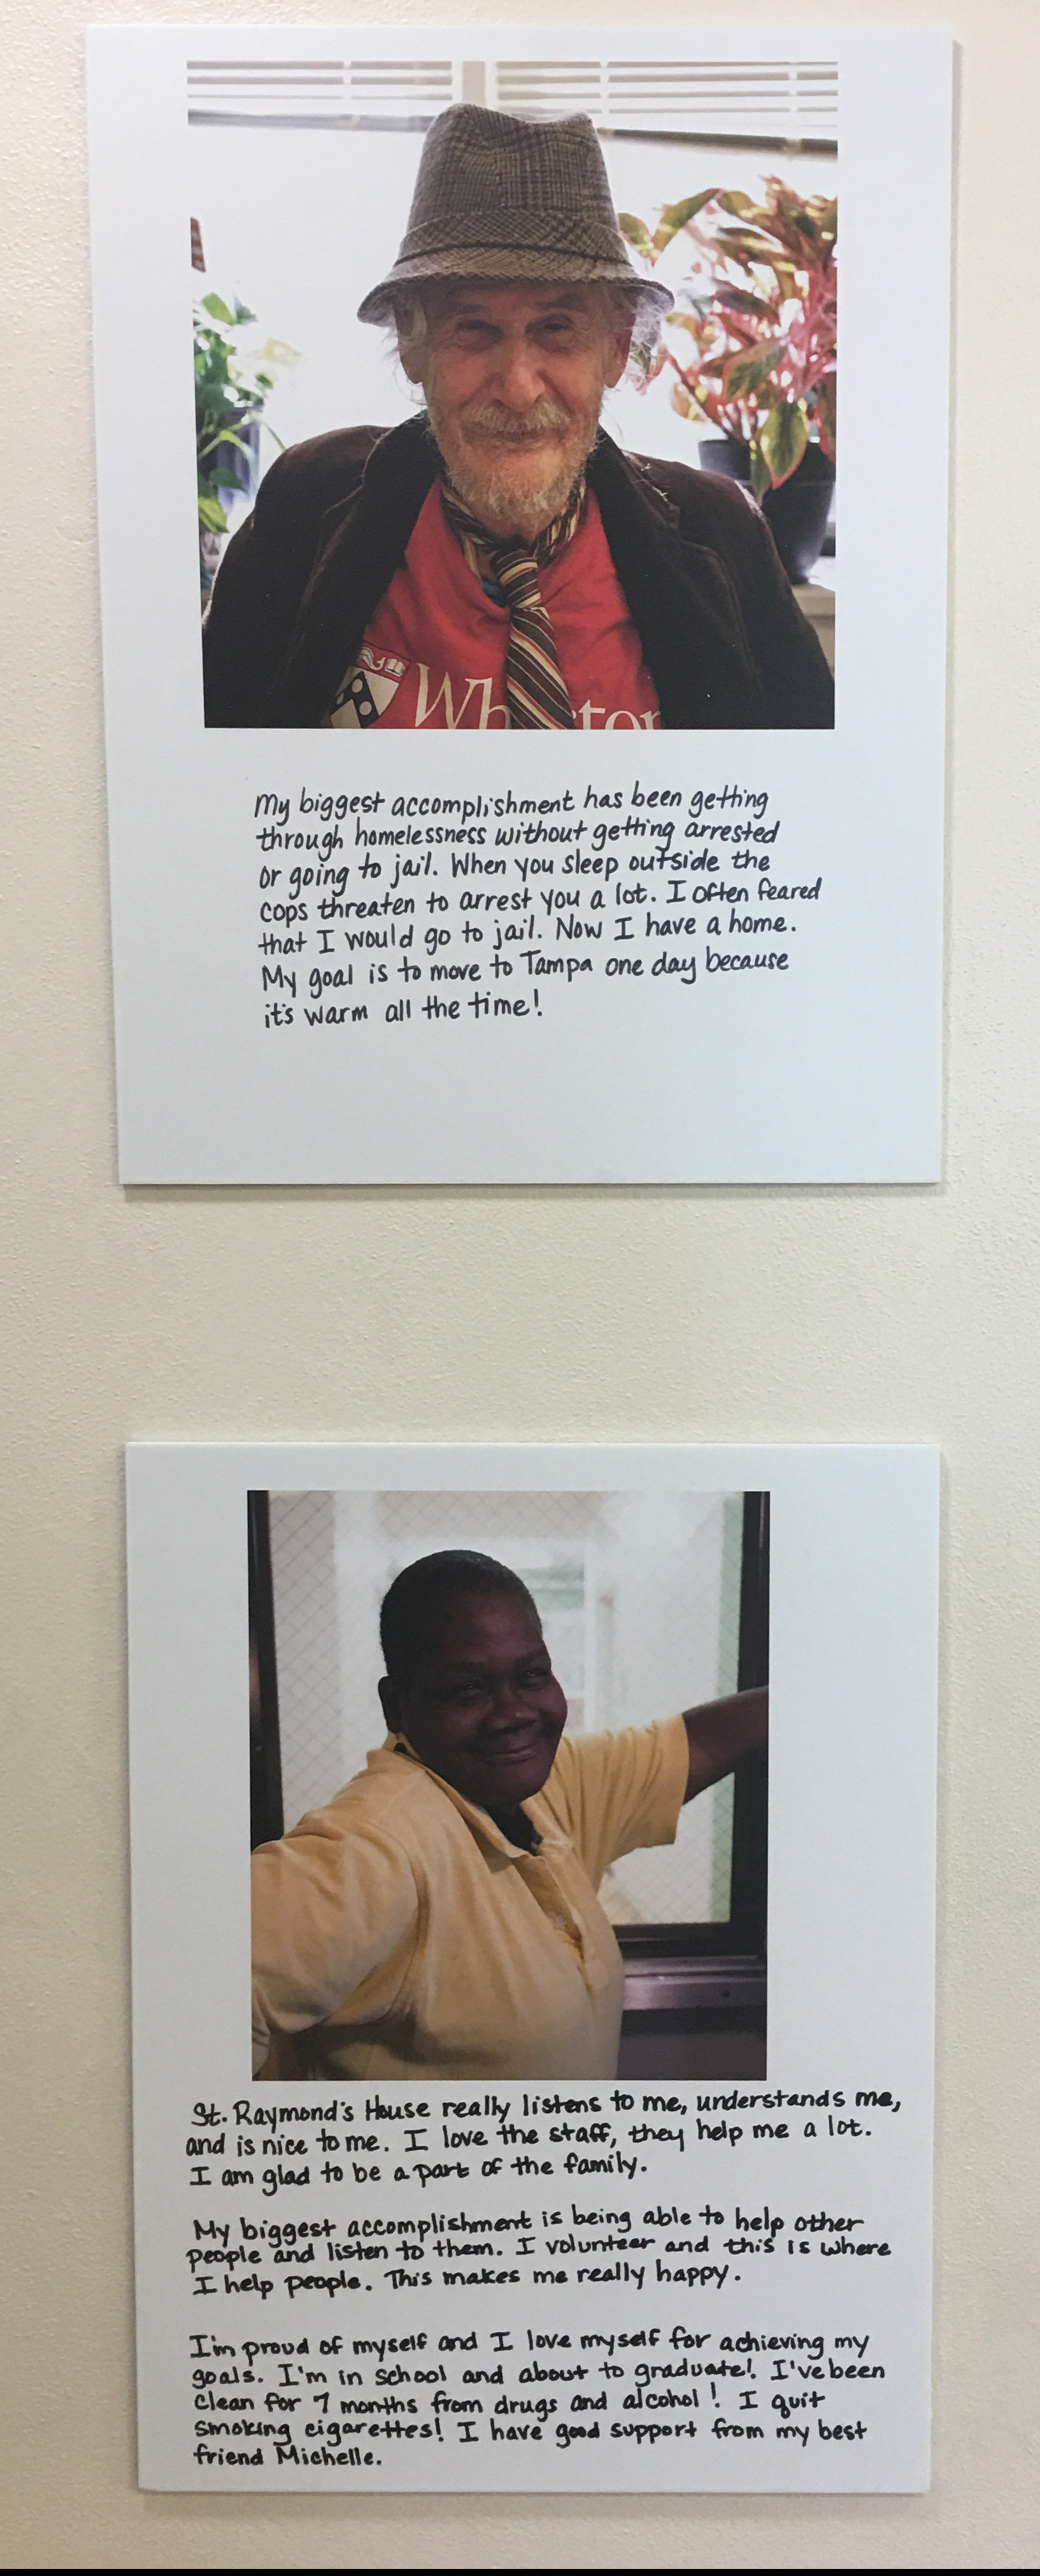 Wh ton
My biggest accomplishment has been getting
through homelessness without getting arrested
or going to jail. When you sleep outside the
cops threaten to arrest you a lot. I often feared
that I would go to jail. Now I have a home.
My goal is to move to Tampa one day because
it's warm all the time!
St. Raymond's House really listens to me, understands me,
and is nice to me. I love the staff, they help me a lot.
I am glad to be a part of the family.
My biggest accomplishment is being able to help other
people and listen to them. I volunteer and this is where
I help people. This makes me really happy.
I'm proud of myself and I love myself for achieving my
goals. I'm in school and about to graduate! I've been
clean for 7 months from drugs and alcohol! I quit
smoking cigarettes! I have good support from my best
friend Michelle.